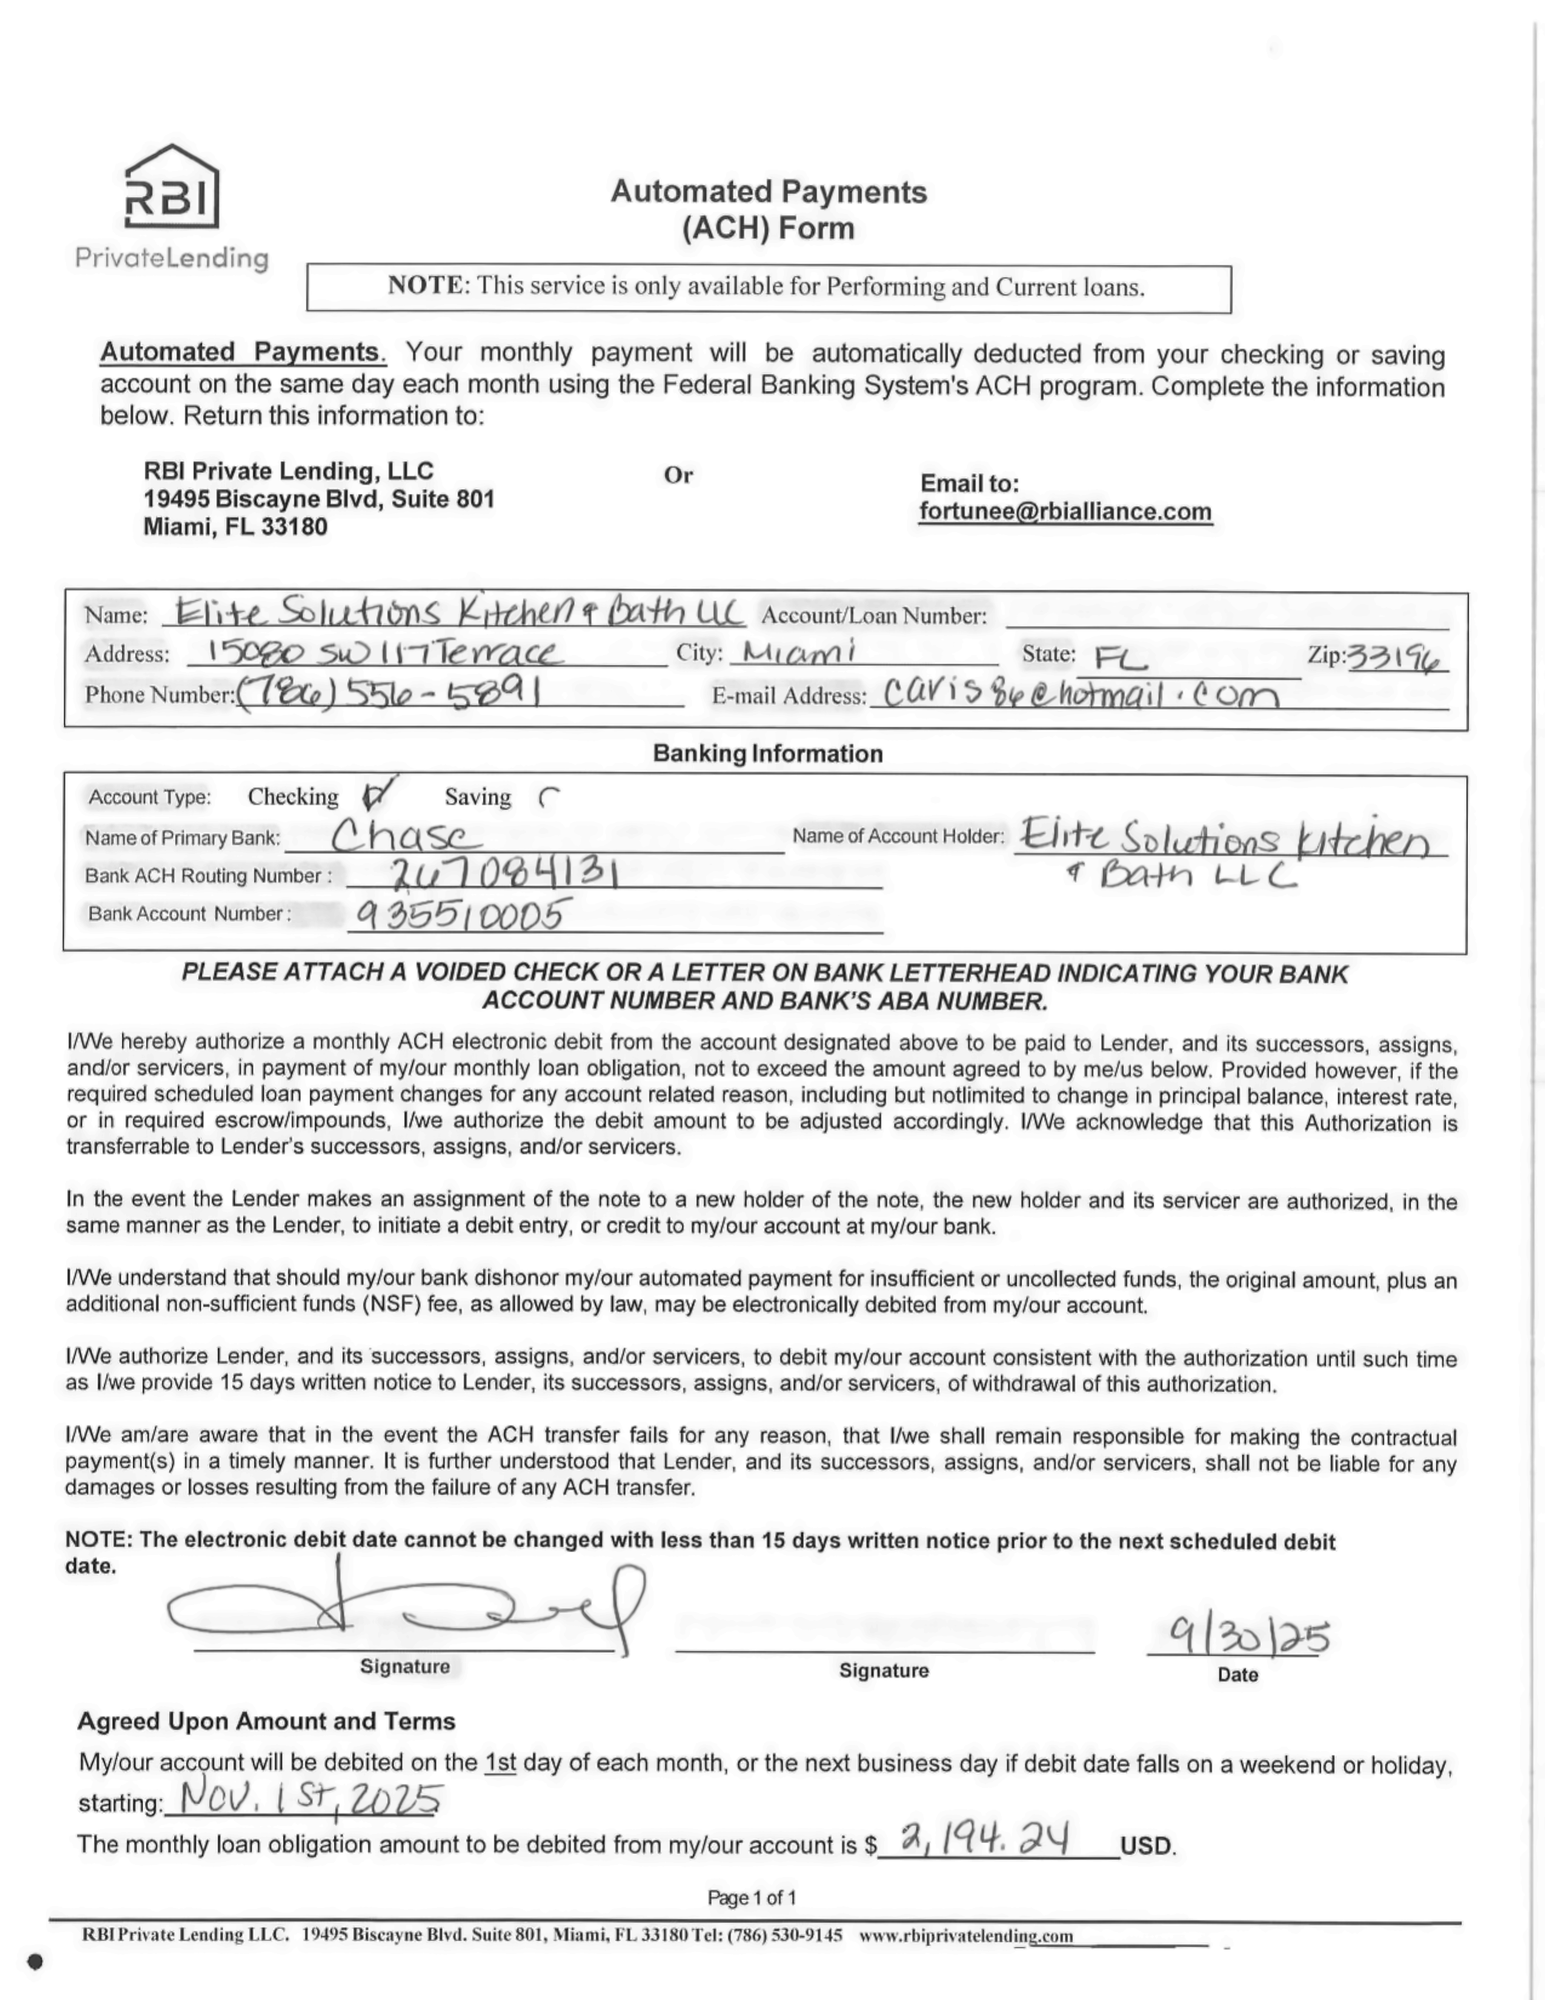 RBI
PrivateLending
Automated Payments
(ACH) Form
NOTE: This service is only available for Performing and Current loans.
Automated Payments. Your monthly payment will be automatically deducted from your checking or saving
account on the same day each month using the Federal Banking System's ACH program. Complete the information
below. Return this information to:
RBI Private Lending, LLC
19495 Biscayne Blvd, Suite 801
Miami, FL 33180
Or
Email to:
fortunee@rbialliance.com
Name: Elite Solutions Kitchen & Bath LLC Account/Loan Number:
Address: 15080 SW 117 Terrace City: Miami State: FL Zip: 33196
Phone Number: (786) 556-5891 E-mail Address: caris86@hotmail.com
Banking Information
Account Type: Checking Saving
Name of Primary Bank: Chase Name of Account Holder: Elite Solutions Kitchen
& Bath LLC
Bank ACH Routing Number : 267084131
Bank Account Number : 935510005
PLEASE ATTACH A VOIDED CHECK OR A LETTER ON BANK LETTERHEAD INDICATING YOUR BANK
ACCOUNT NUMBER AND BANK'S ABA NUMBER.
I/We hereby authorize a monthly ACH electronic debit from the account designated above to be paid to Lender, and its successors, assigns,
and/or servicers, in payment of my/our monthly loan obligation, not to exceed the amount agreed to by me/us below. Provided however, if the
required scheduled loan payment changes for any account related reason, including but notlimited to change in principal balance, interest rate,
or in required escrow/impounds, I/we authorize the debit amount to be adjusted accordingly. I/We acknowledge that this Authorization is
transferrable to Lender's successors, assigns, and/or servicers.
In the event the Lender makes an assignment of the note to a new holder of the note, the new holder and its servicer are authorized, in the
same manner as the Lender, to initiate a debit entry, or credit to my/our account at my/our bank.
I/We understand that should my/our bank dishonor my/our automated payment for insufficient or uncollected funds, the original amount, plus an
additional non-sufficient funds (NSF) fee, as allowed by law, may be electronically debited from my/our account.
I/We authorize Lender, and its successors, assigns, and/or servicers, to debit my/our account consistent with the authorization until such time
as I/we provide 15 days written notice to Lender, its successors, assigns, and/or servicers, of withdrawal of this authorization.
I/We am/are aware that in the event the ACH transfer fails for any reason, that I/we shall remain responsible for making the contractual
payment(s) in a timely manner. It is further understood that Lender, and its successors, assigns, and/or servicers, shall not be liable for any
damages or losses resulting from the failure of any ACH transfer.
NOTE: The electronic debit date cannot be changed with less than 15 days written notice prior to the next scheduled debit
date.
9/30/25
Signature Signature Date
Agreed Upon Amount and Terms
My/our account will be debited on the 1st day of each month, or the next business day if debit date falls on a weekend or holiday,
starting: Nov. 1st, 2025
The monthly loan obligation amount to be debited from my/our account is $ 2,194.24 USD.
Page 1 of 1
RBI Private Lending LLC. 19495 Biscayne Blvd. Suite 801, Miami, FL 33180 Tel: (786) 530-9145 www.rbiprivatelending.com